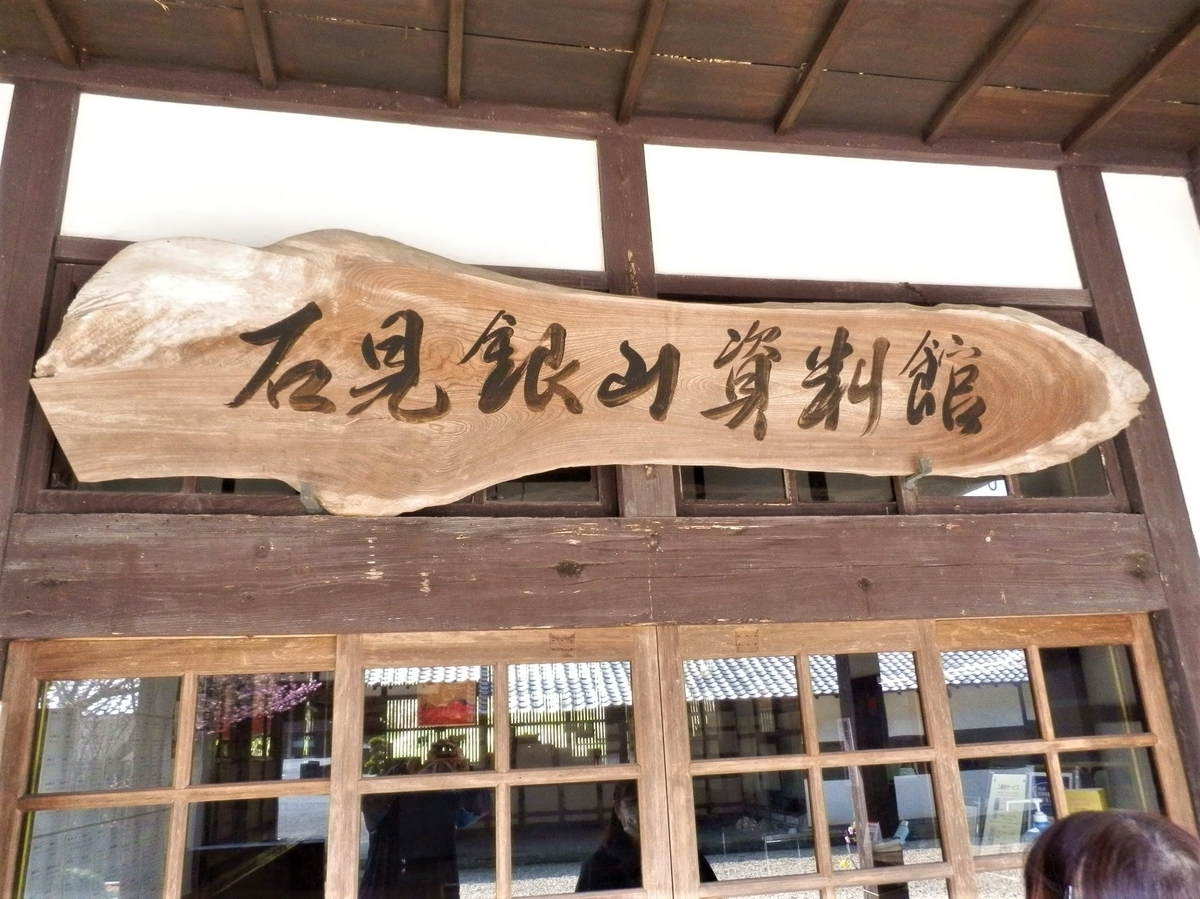 石見銀山資料館